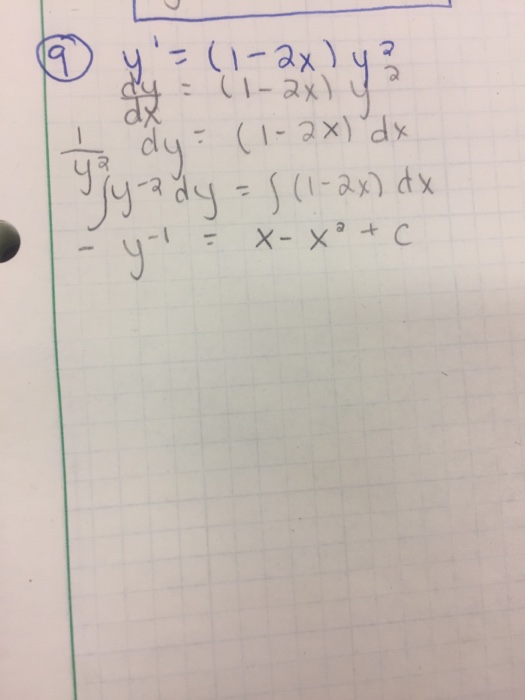 9 y' = (1-2x) y²
dy/dx = (1-2x) y²
1/y² dy = (1-2x) dx
∫y⁻² dy = ∫(1-2x) dx
- y⁻¹ = x - x² + c